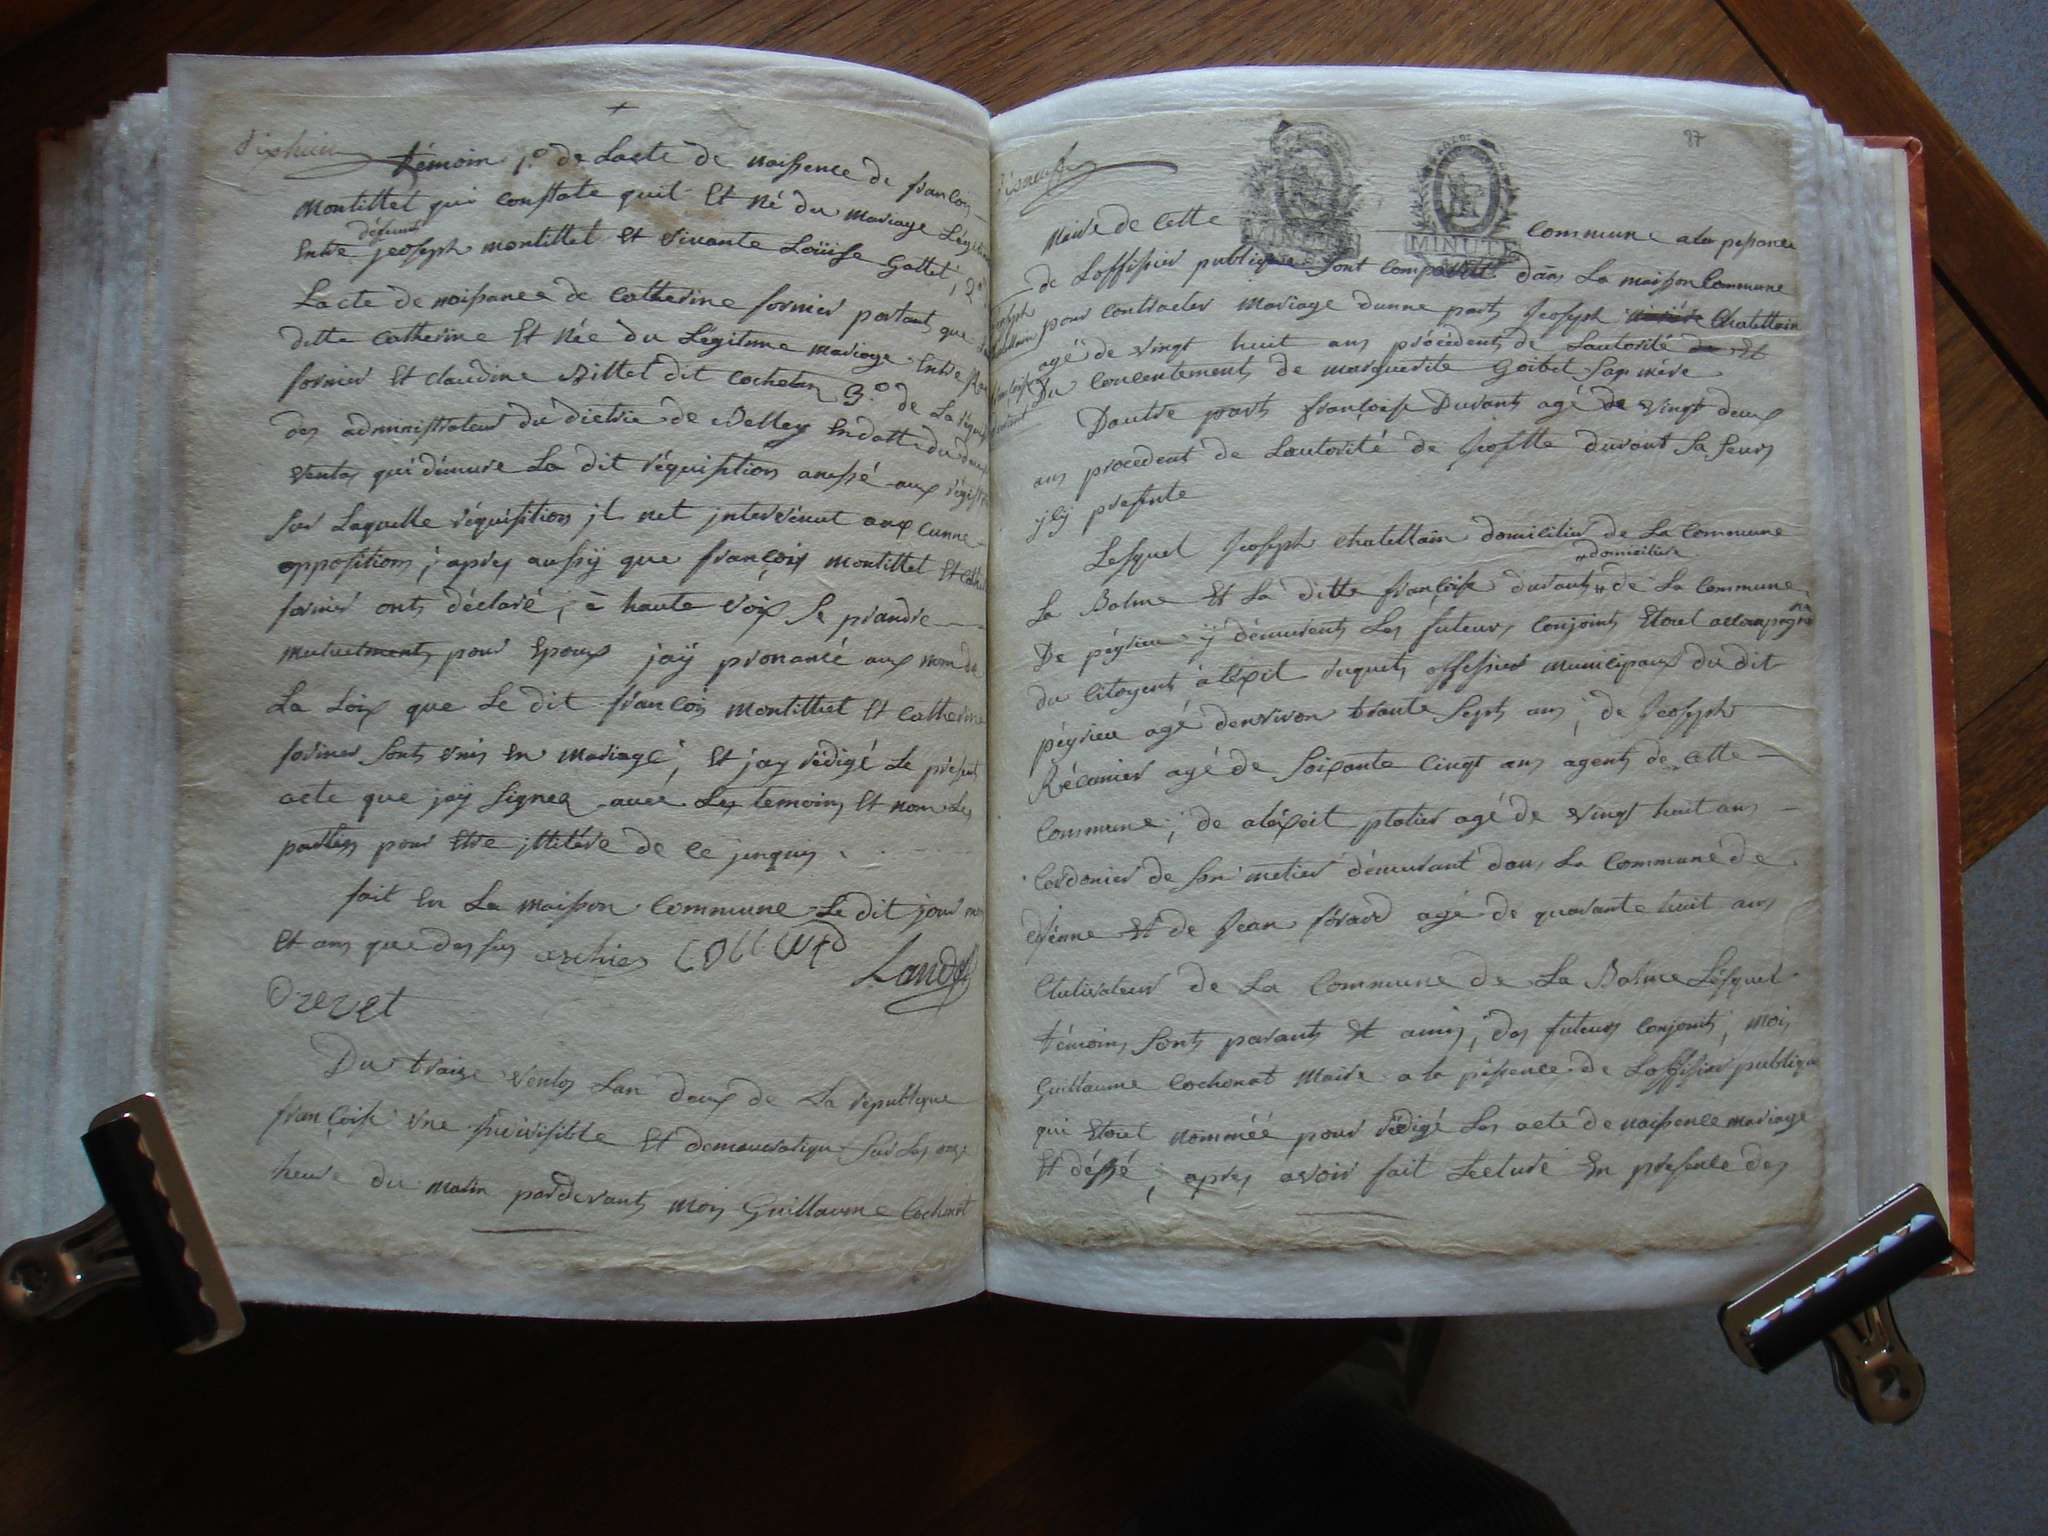 dixhuit
témoin 1.o de Lacte de naissence de françois
montillet qui constate quil Et Né du Mariage
défunt
Entre jeoseph montillet Et vivante Loüise Gallet, 2.o
Lacte de naissance de Catherine fornier portant que
dette catherine Et Née du Légitime mariage Entre
fornier Et claudine Billet dit cochelin 3.o de La
des administrateur du distric de Belley En datte du
ventos qui démure La dit réquisition anessé aux
sur Laquelle réquisition il net intervénut aux cunne
oppositions; apres aussÿ que françois montillet Et
fornier onts déclaré, à haute voix Se prandre
mutuelments pour Epoux jaÿ prononcé aux nom de
La Loix que Le dit françois montillet Et catherine
fornier Sonts unis En mariage; Et jay rédigé Le présent
acte que jaÿ Signer avec Les temoins Et non Les
parties pour Etre ittitére de ce
fait En La maison commune Le dit jour
Et ans que dessus
Du traize ventos Lan deux de La republique
françoise une indivisible Et démoucratique Sur Les onze
heure du matin pardevants mois Guillaume Cochonat
87
Maire de Cette commune a la pessance
MINUTE MINUTE
de Loffissier publique Sont comparut dans La maison Commune
pour contracter mariage dunne parts Jeoseph Chatellain
agé de vingt huit ans procédents de Lautorité de Et
Du concentements de marguerite Goibet Sa mere
Dautre parts françoise Durants agé de vingt deux
ans procedent de Lautorité de Josette durant Sa Seur
ÿcÿ presente
Lesquel Jeoseph chatellain domicilier de La Commune
domicilier
La Balme Et La ditte françoise durants de La Commune
De péÿrieu ÿ démurents Les futeurs conjoints Etoret accompagné
du citoyent aléxil ruquets offissier municipaux du dit
péÿrieu agé denviron trante Septs ans, de Jeoseph
Récamier agé de Soixante cingt ans agents de cette
commune; de aléxcit platier agé de vingt huit ans
Cordonier de Son métier démurant dans La Commune de
et de Jean férard agé de quarante huit ans
Cultivateur de La Commune de La Balme Lésquel
témoins Sonts parants Et amis, des futeurs conjoints, mois
Guillaume Cochonat Maire a la pésence de Loffisier publique
qui Etoret nommée pour rédigé Les acte de naissence mariage
Et déssé; apres avoir fait Lecture En presence des